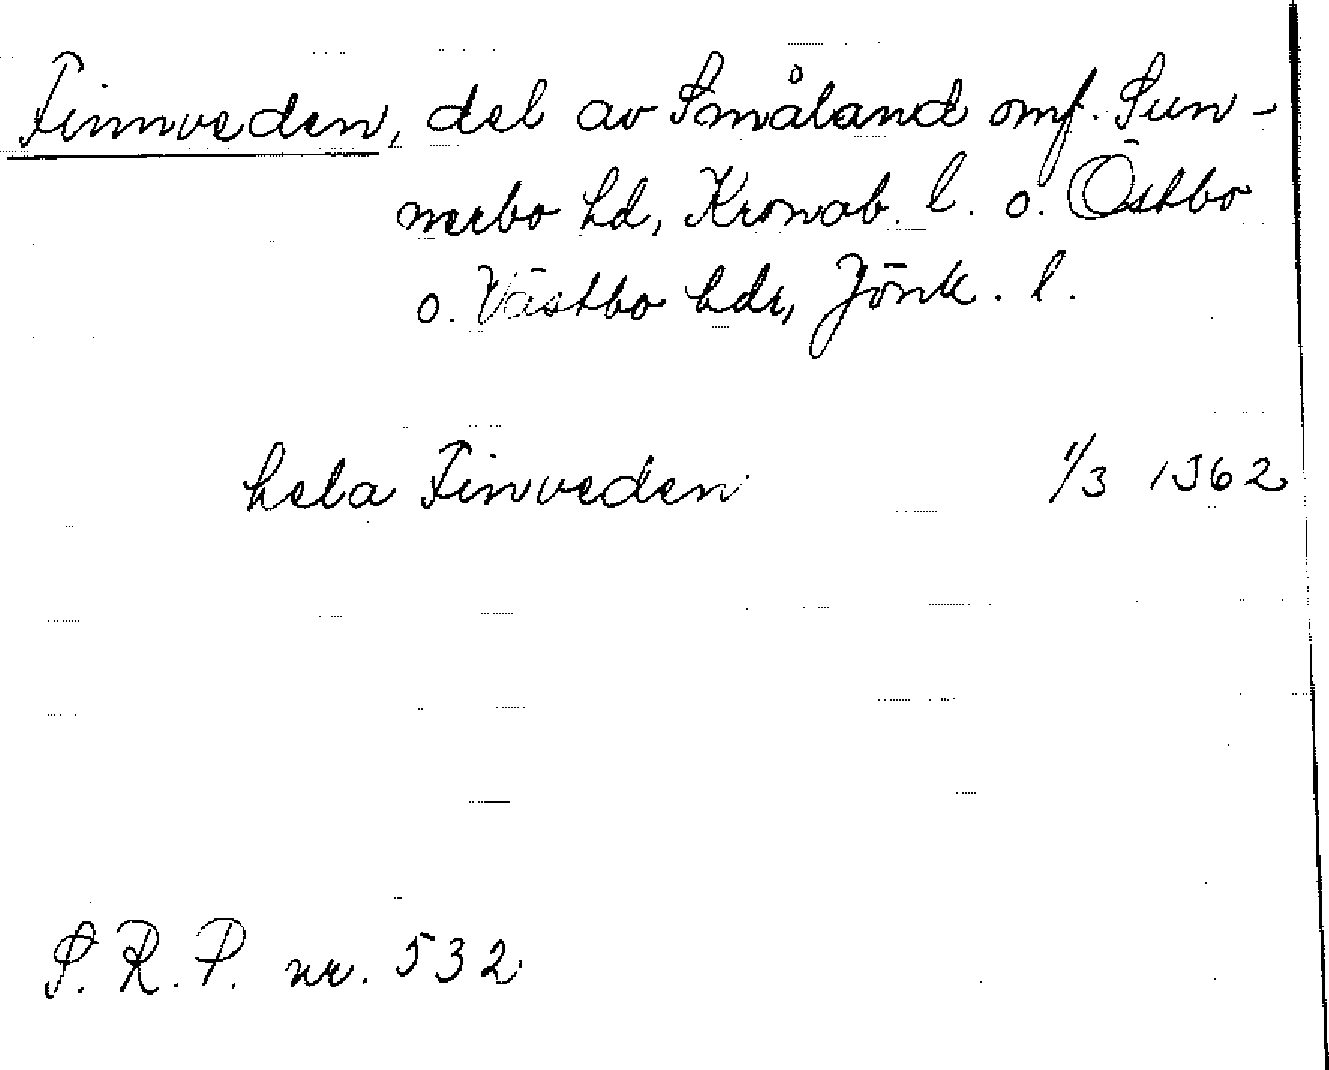 Finnveden, del av Småland omf. Sun-
nerbo hd, Kronob. l. o. Östbo
o. Västbo hdr, Jönk. l.
hela Finveden 1/3 1362
S. R. P. nr. 532